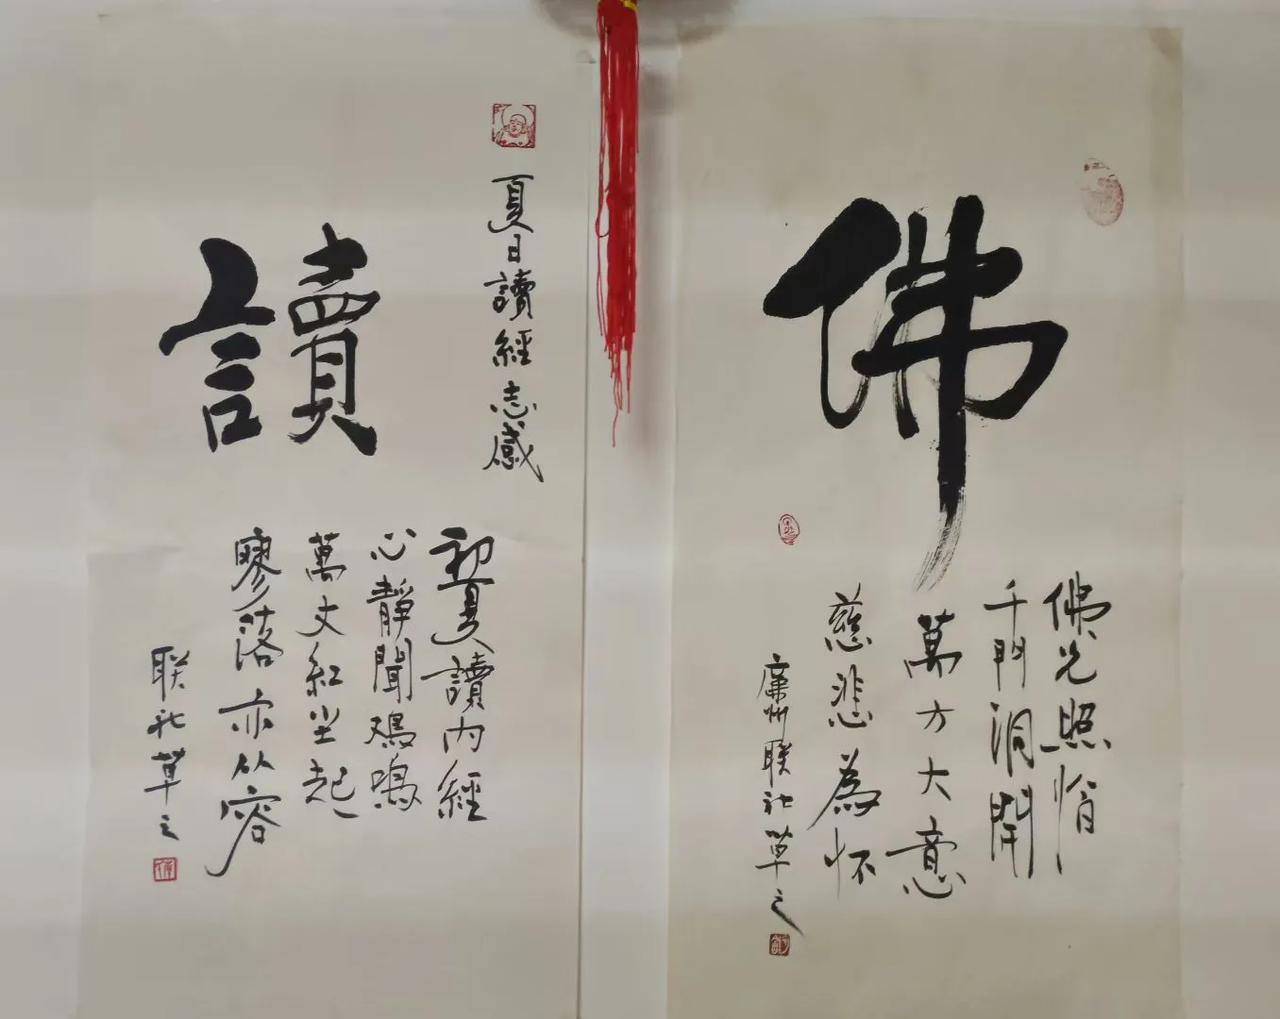 佛
佛光照悄
千門洞開
萬方大意
慈悲為怀
廉州联社草之
夏日讀經志感
讀
初夏讀内經
心靜聞鸡鳴
萬丈紅尘起
寥落亦从容
联社草之